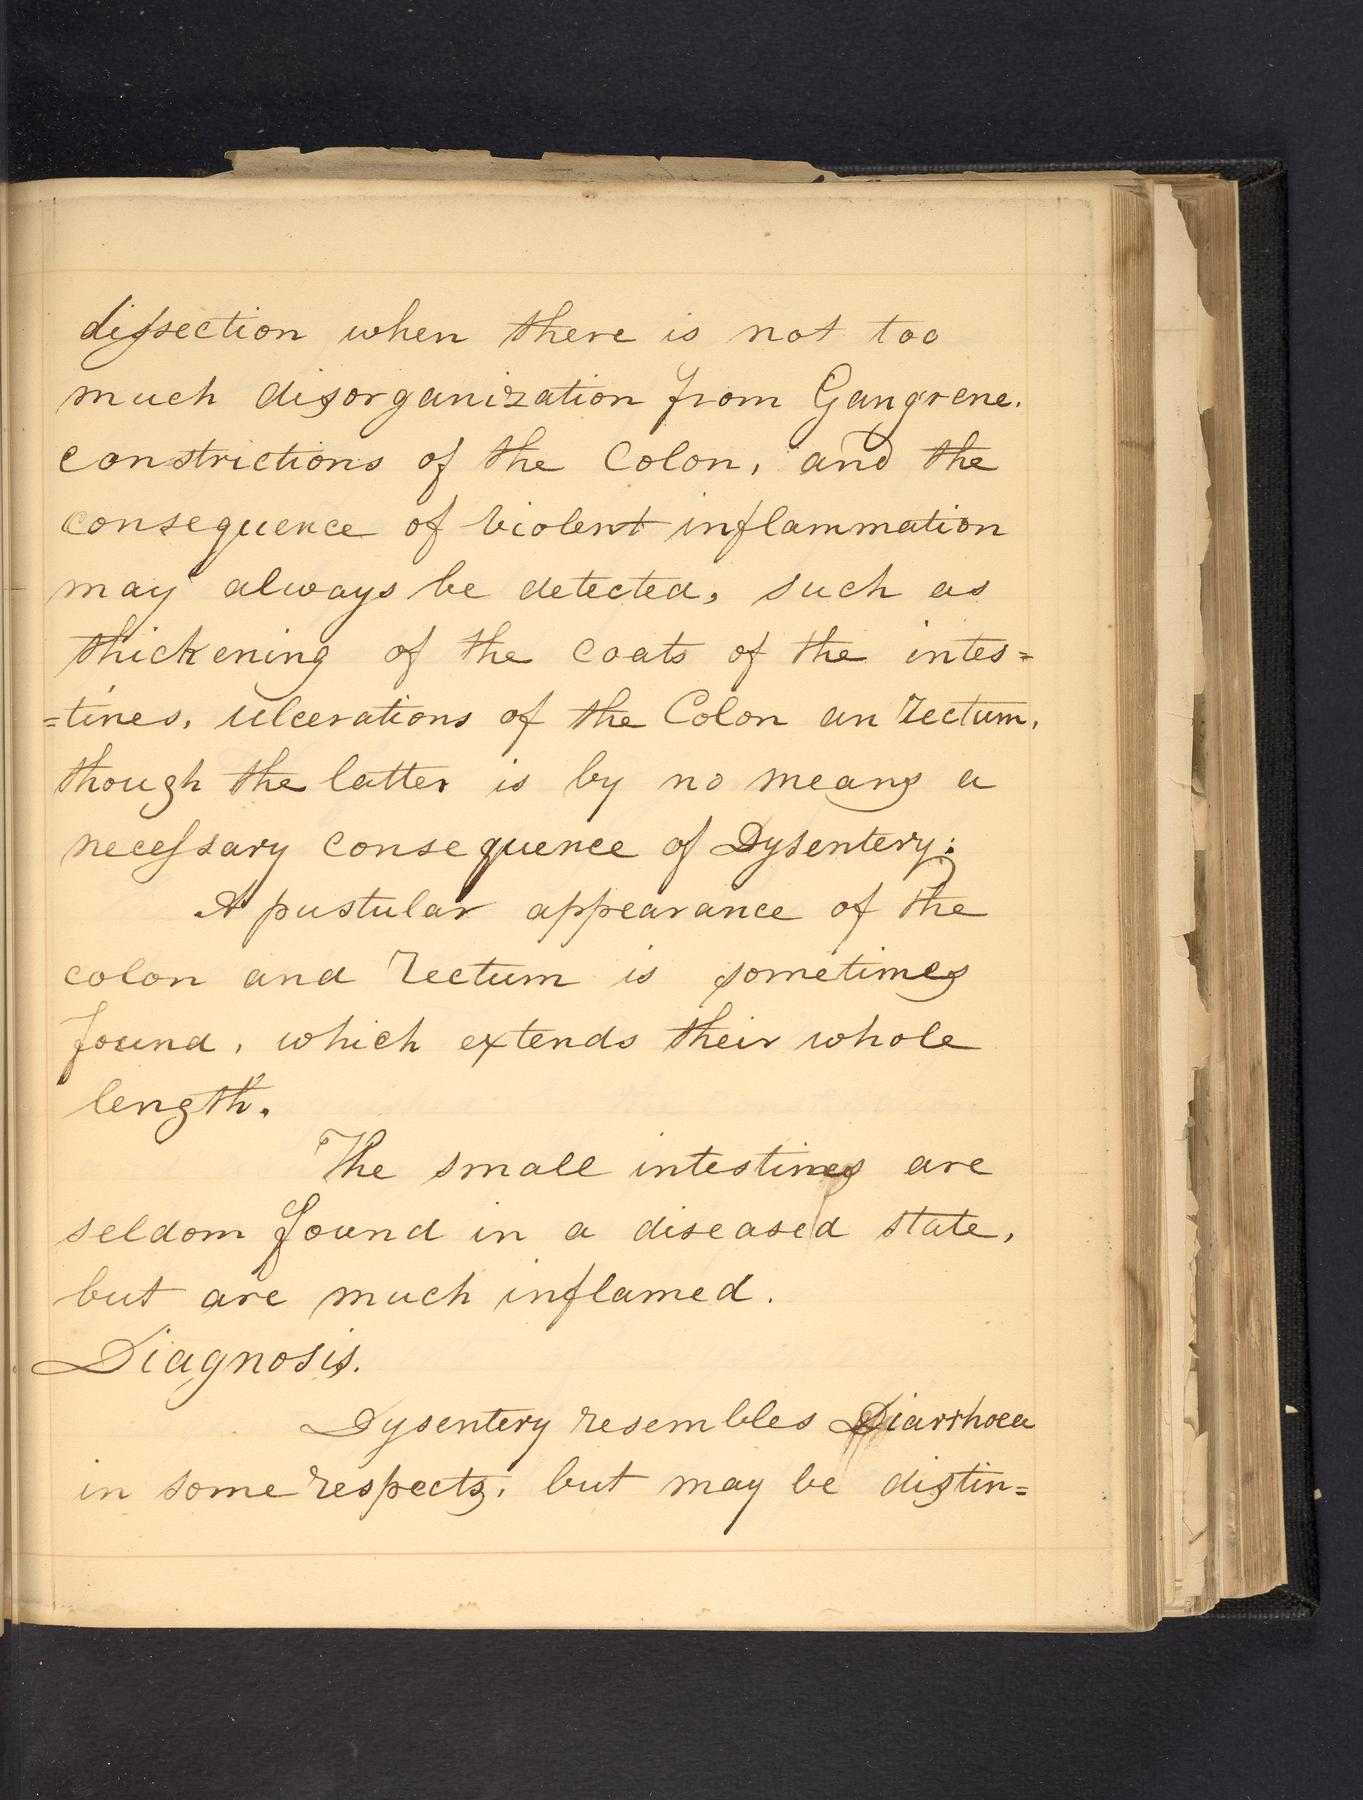 dissection when there is not too
much disorganization from Gangrene.
constrictions of the Colon, and the
consequence of violent inflammation
may always be detected, such as
thickening of the coats of the intes=
=tines, ulcerations of the Colon an rectum,
though the latter is by no means a
necessary consequence of Dysentery.
A pustular appearance of the
colon and rectum is sometimes
found, which extends their whole
length.
The small intestines are
seldom found in a diseased state,
but are much inflamed.
Diagnosis.
Dysentery resembles Diarrhoea
in some respects, but may be distin=